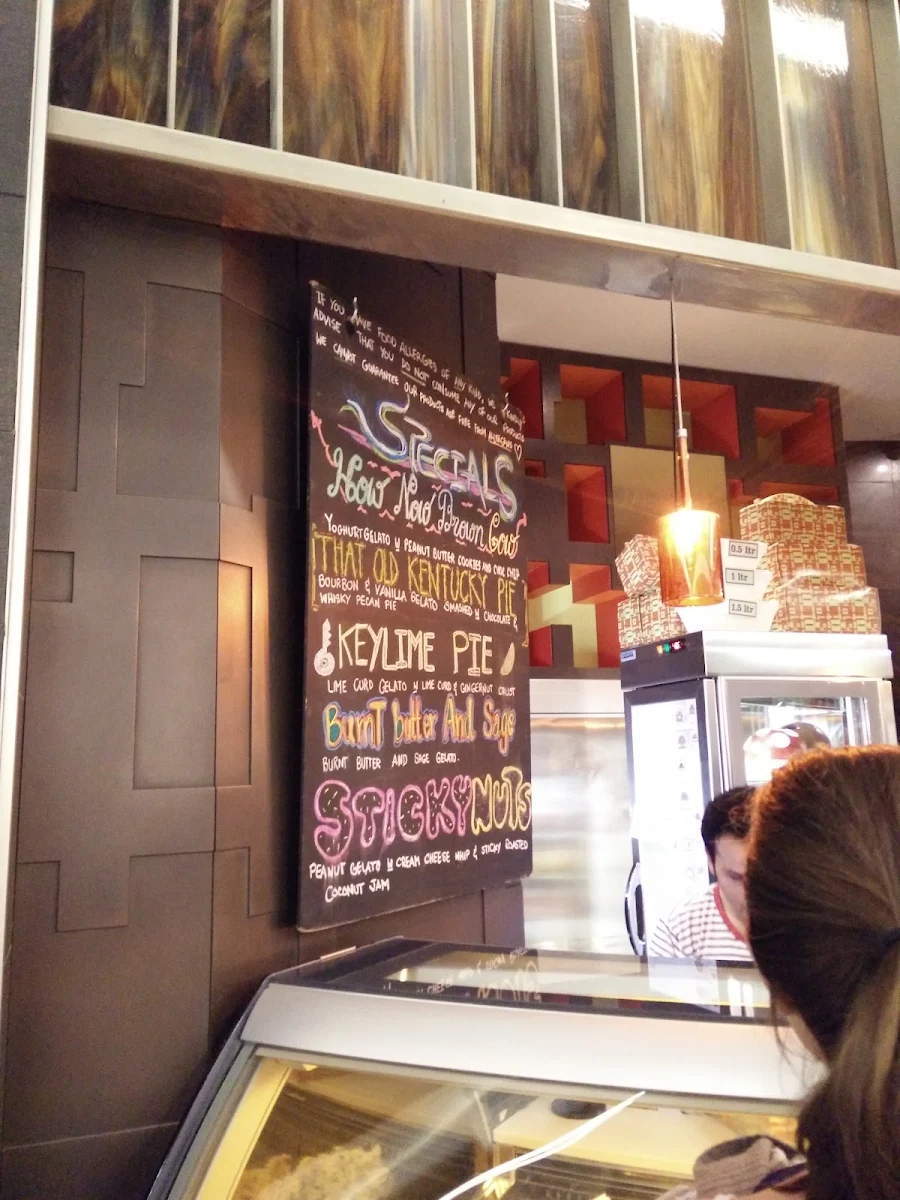 IF YOU HAVE FOOD ALLERGIES OF ANY KIND, WE KINDLY
ADVISE THAT YOU DO NOT CONSUME ANY OF OUR PRODUCTS
WE CANNOT GUARANTEE OUR PRODUCTS ARE FREE FROM ALLERGENS
SPECIALS
How Now Brown Cow
YOGHURT GELATO W PEANUT BUTTER COOKIES AND CHOC CHIP
THAT OLD KENTUCKY PIE
BOURBON & VANILLA GELATO SMASHED W CHOCOLATE &
WHISKY PECAN PIE
KEYLIME PIE
LIME CURD GELATO W LIME CURD & GINGERNUT CRUST
BurnT butter And Sage
BURNT BUTTER AND SAGE GELATO.
STICKYNUTS
PEANUT GELATO W CREAM CHEESE WHIP & STICKY ROASTED
COCONUT JAM
0.5 ltr
1 ltr
1.5 ltr